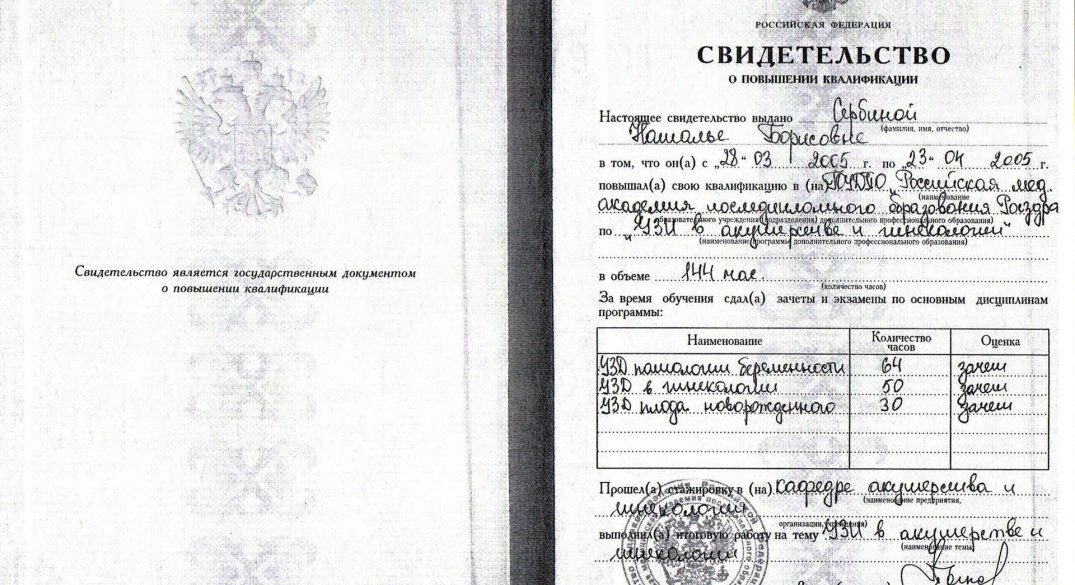 Свидетельство является государственным документом
о повышении квалификации
РОССИЙСКАЯ ФЕДЕРАЦИЯ
СВИДЕТЕЛЬСТВО
О ПОВЫШЕНИИ КВАЛИФИКАЦИИ
Настоящее свидетельство выдано Сербиной
(фамилия, имя, отчество)
Наталье Борисовне
в том, что он(а) с „28“ 03 2005 г. по „23“ 04 2005 г.
повышал(а) свою квалификацию в (на) ГОУДПО „Российская мед.
(наименование
академия последипломного образования Росздра
образовательного учреждения (подразделения) дополнительного профессионального образования)
по „УЗИ в акушерстве и гинекологии“
(наименование программы дополнительного профессионального образования)
в объеме 144 час.
(количество часов)
За время обучения сдал(а) зачеты и экзамены по основным дисциплинам
программы:
Наименование Количество часов Оценка
УЗД патологии беременности 64 зачет
УЗД в гинекологии 50 зачет
УЗД плода новорожденного 30 зачет
Прошел(а) стажировку в (на) Кафедре акушерства и
(наименование предприятия,
гинекологии
организации, учреждения)
выполнил(а) итоговую работу на тему УЗИ в акушерстве и
(наименование темы)
гинекологии